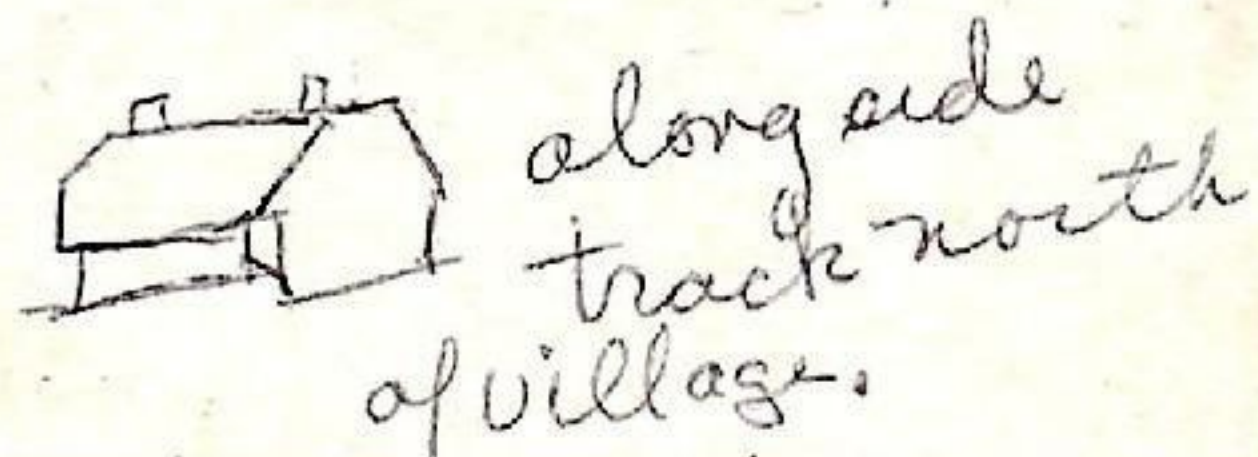 along side
track north
of village.